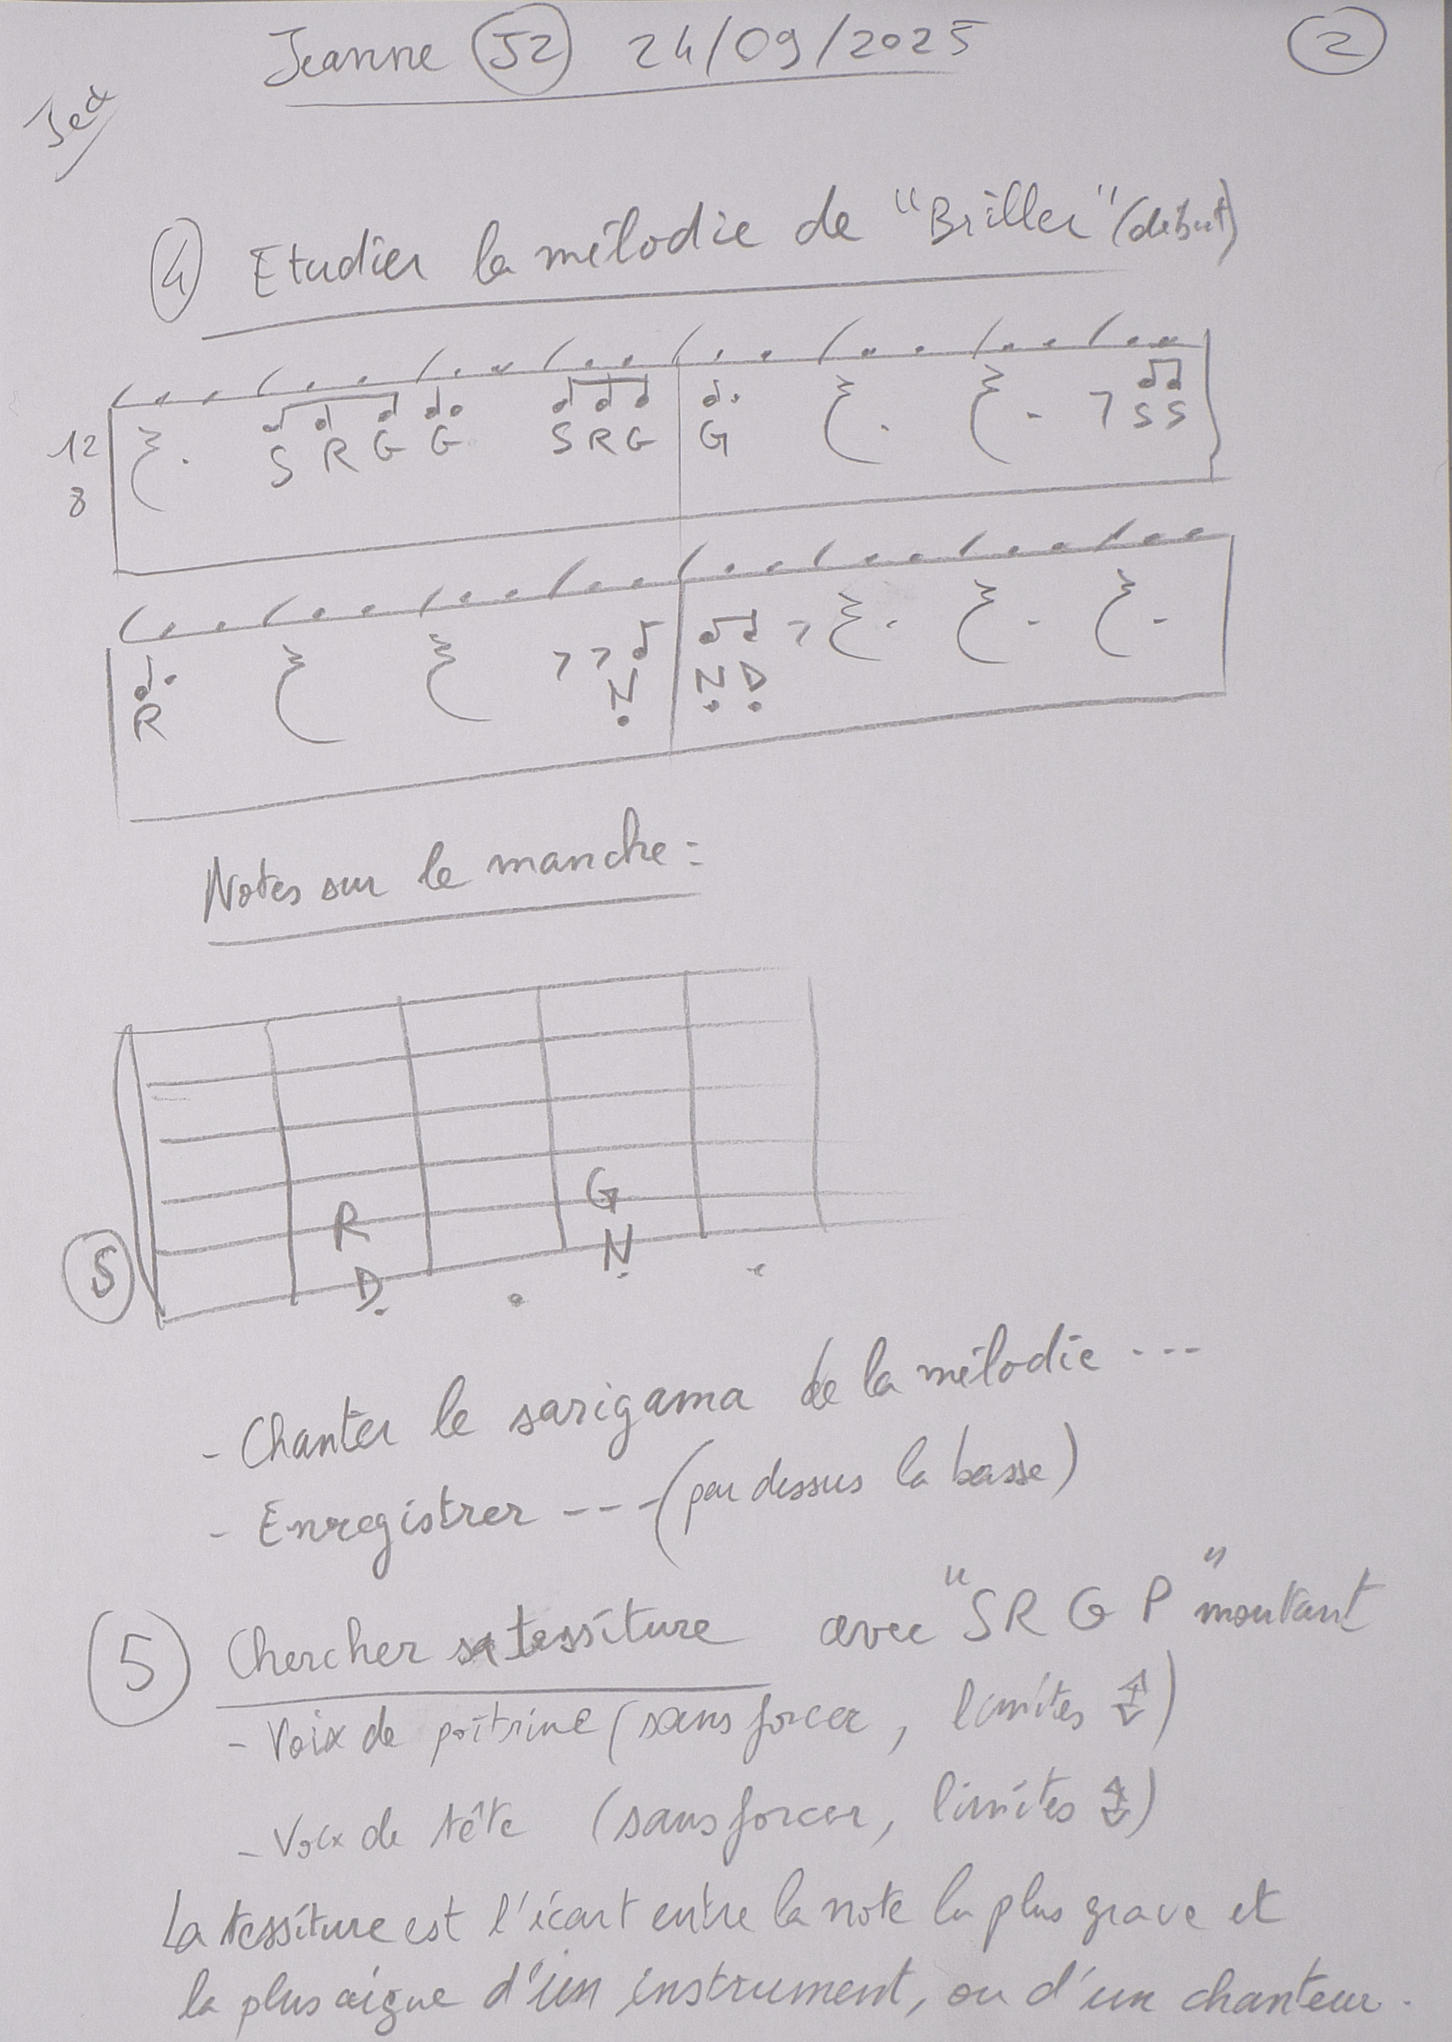 Jeanne J2 24/09/2025 2
4 Etudier la mélodie de "Briller" (début)
12
8
S R G G S R G G 7 S S
R 7 7 N N D 7
Notes sur le manche :
G
R N
S D
- Chanter le sarigama de la mélodie ...
- Enregistrer --- (par dessus la basse)
5 Chercher sa tessiture avec "S R G P" montant
- Voix de poitrine (sans forcer, limites ↕)
- Voix de tête (sans forcer, limites ↕)
La tessiture est l'écart entre la note la plus grave et
la plus aigue d'un instrument, ou d'un chanteur.